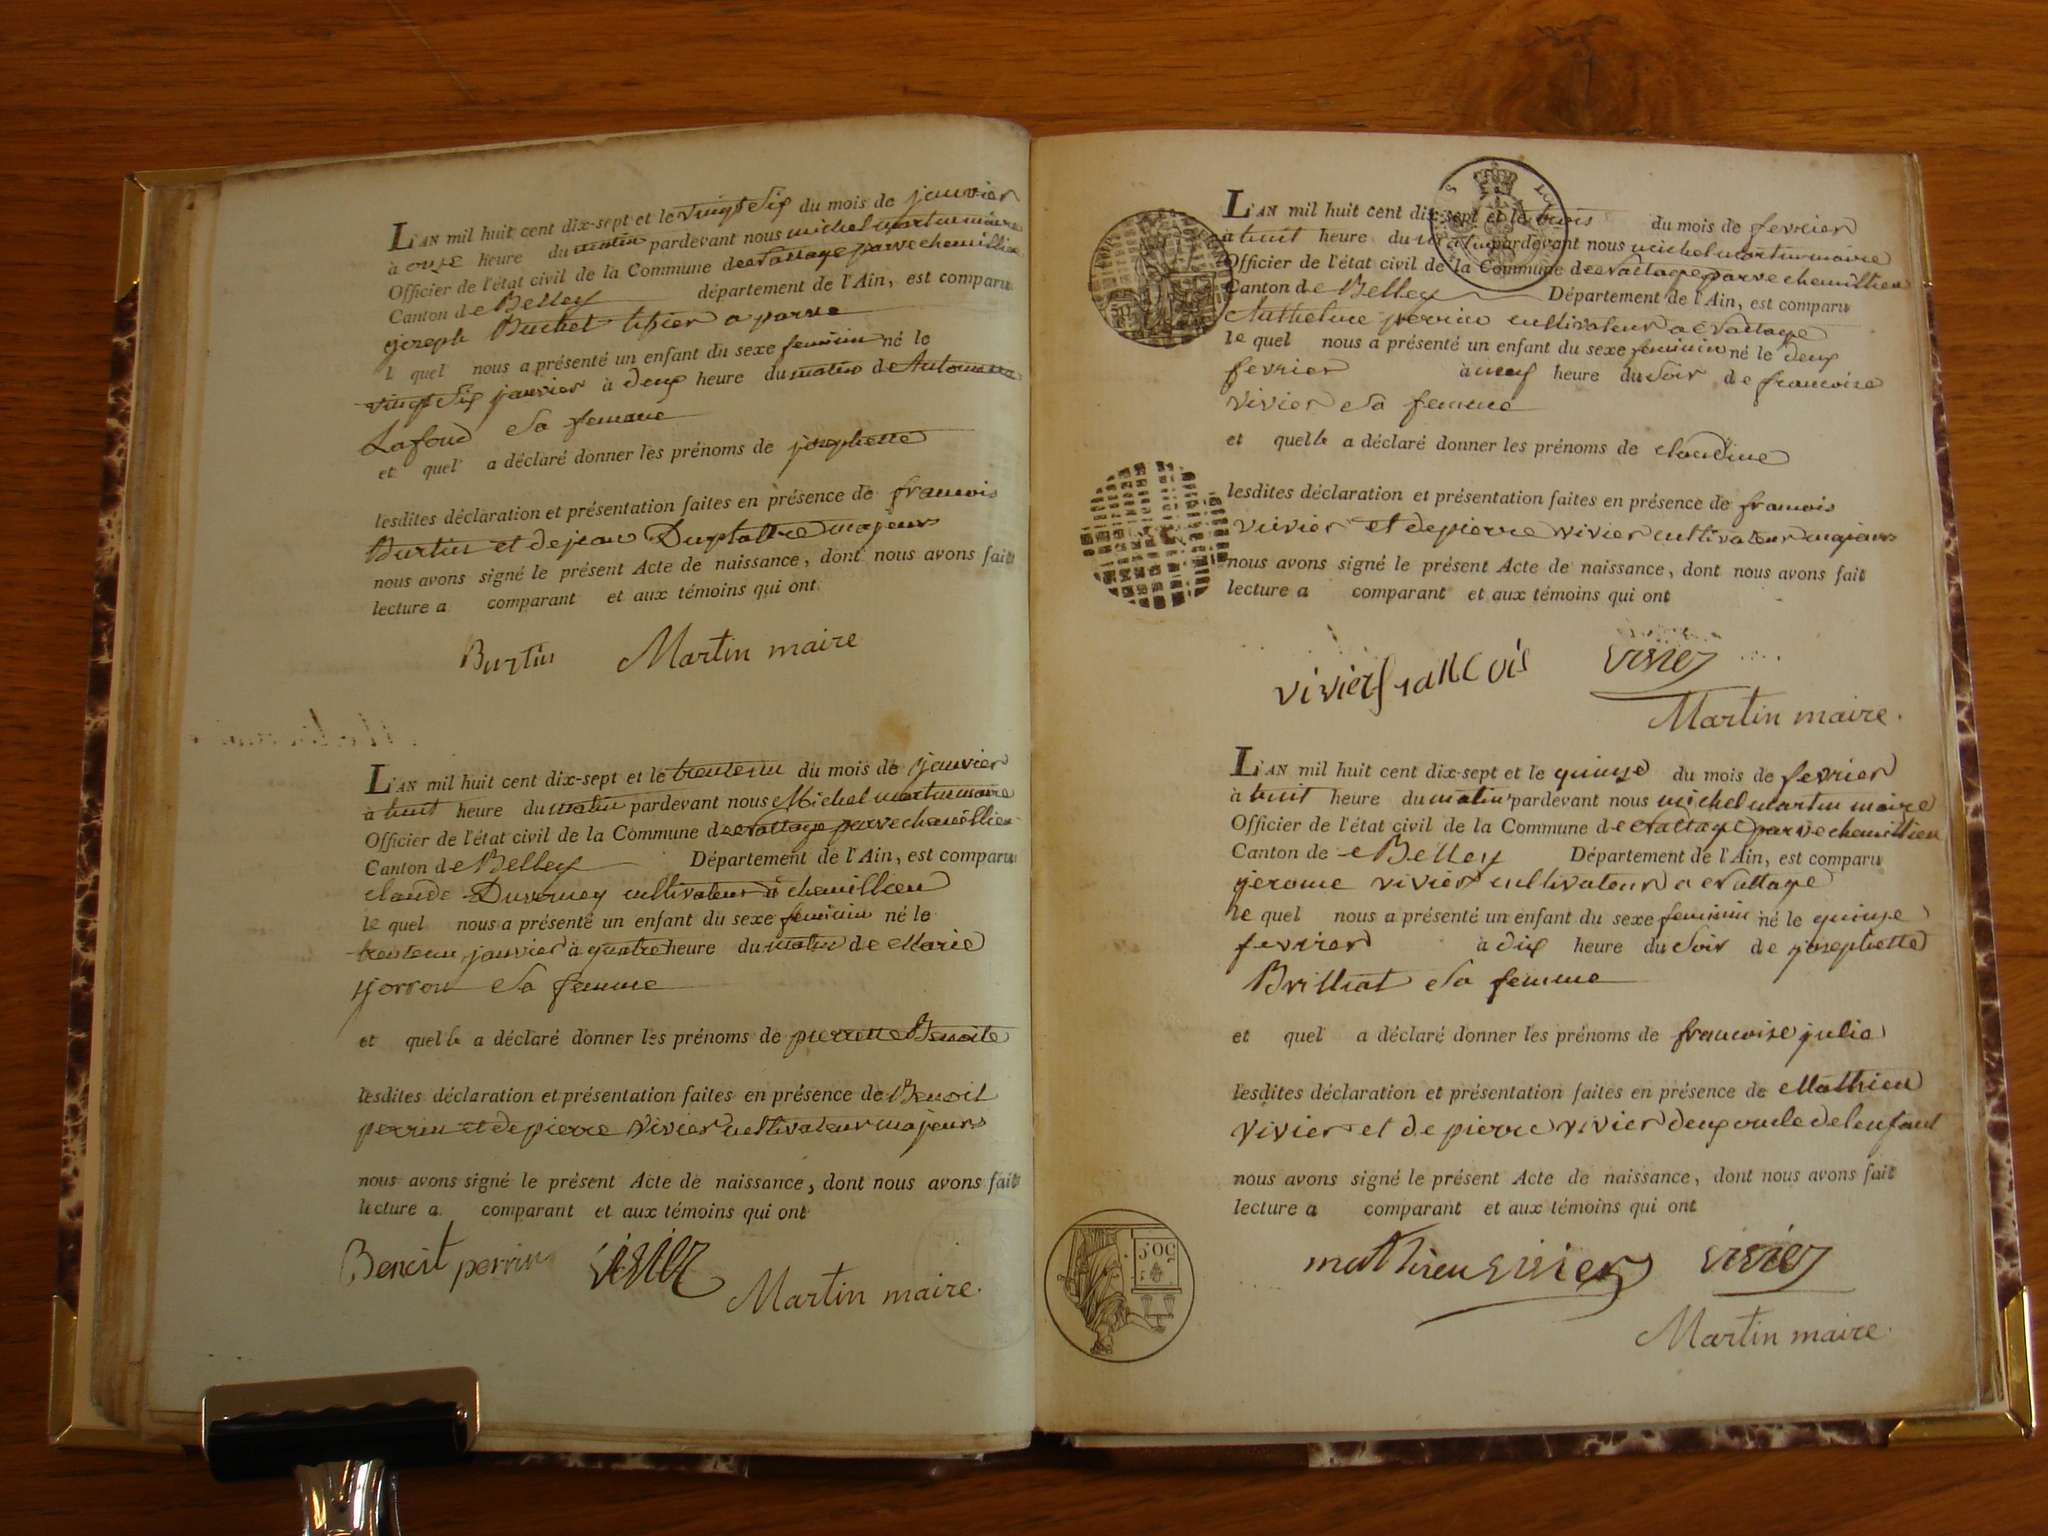 L'AN mil huit cent dix-sept et le vingt Six du mois de janvier
à onze heure du matin pardevant nous michel martin maire
Officier de l'état civil de la Commune de parve chemillieu
Canton de Belley département de l'Ain, est comparu
joseph Buchet tisier a parve
l quel nous a présenté un enfant du sexe feminin né le
vingt Six janvier à deux heure du matin de
Lafond Sa femme
et quel a déclaré donner les prénoms de josephette
lesdites déclaration et présentation faites en présence de francois
Burtin et de jean majeurs
nous avons signé le présent Acte de naissance, dont nous avons fait
lecture a comparant et aux témoins qui ont
Burtin Martin maire
L'AN mil huit cent dix-sept et le trenteun du mois de janvier
à huit heure du matin pardevant nous Michel martin maire
Officier de l'état civil de la Commune de parve chemillieu
Canton de Belley Département de l'Ain, est comparu
claude Duverney cultivateur à chemillieu
le quel nous a présenté un enfant du sexe feminin né le
trenteun janvier à quatre heure du matin de Marie
jorrou Sa femme
et quelle a déclaré donner les prénoms de pierrette Benoite
lesdites déclaration et présentation faites en présence de Benoit
perrin et de pierre Vivier cultivateur majeurs
nous avons signé le présent Acte de naissance, dont nous avons fait
lecture a comparant et aux témoins qui ont
Benoit perrin vivier
Martin maire
L'AN mil huit cent dix-sept et le trois du mois de fevrier
à huit heure du matin pardevant nous michel martin maire
Officier de l'état civil de la Commune de parve chemillieu
Canton de Belley Département de l'Ain, est comparu
Anthelme perrin cultivateur a
le quel nous a présenté un enfant du sexe feminin né le deux
fevrier à neuf heure du Soir de francoise
Vivier Sa femme
et quelle a déclaré donner les prénoms de claudine
lesdites déclaration et présentation faites en présence de francois
vivier et de pierre vivier cultivateur majeurs
nous avons signé le présent Acte de naissance, dont nous avons fait
lecture a comparant et aux témoins qui ont
vivier francois vivier
Martin maire.
L'AN mil huit cent dix-sept et le quinze du mois de fevrier
à huit heure du matin pardevant nous michel martin maire
Officier de l'état civil de la Commune de parve chemillieu
Canton de Belley Département de l'Ain, est comparu
jerome vivier cultivateur a
le quel nous a présenté un enfant du sexe feminin né le quinze
fevrier à dix heure du Soir de josephette
Brilliat Sa femme
et quel a déclaré donner les prénoms de francoise julie
lesdites déclaration et présentation faites en présence de Mathieu
Vivier et de pierre vivier deux oncle de lenfant
nous avons signé le présent Acte de naissance, dont nous avons fait
lecture a comparant et aux témoins qui ont
mathieu vivier vivier
Martin maire
50C